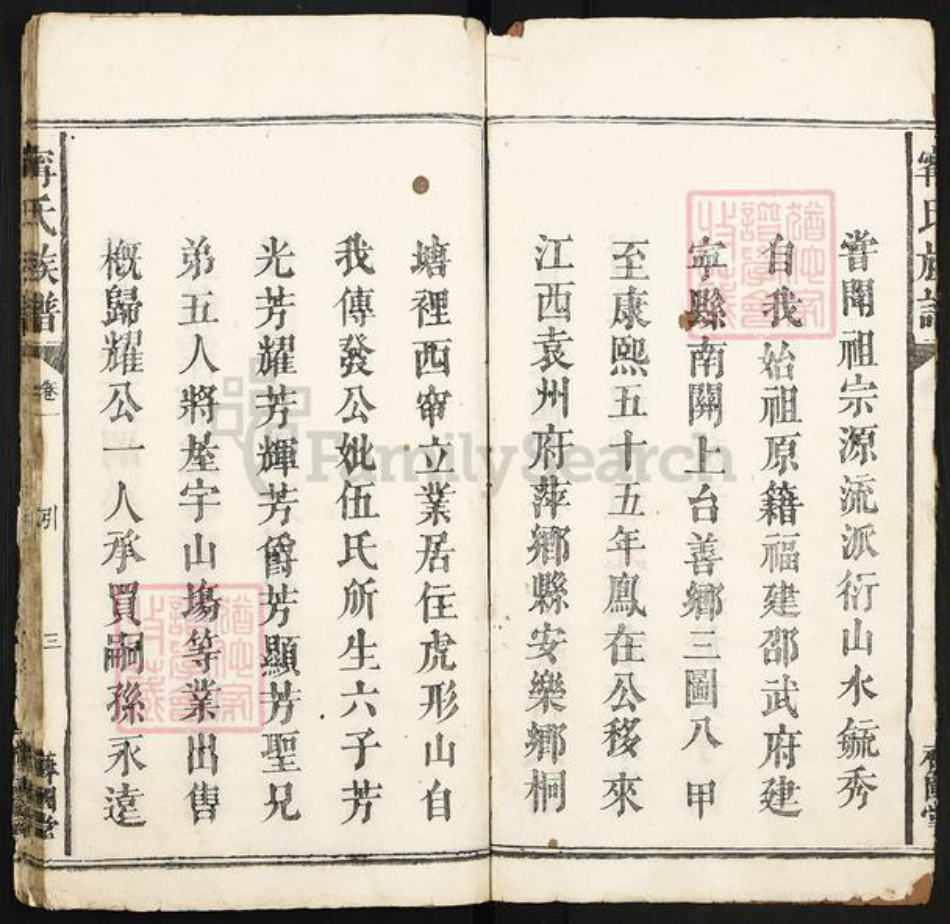 甯氏族譜
嘗聞祖宗源流派衍山水毓秀
自我始祖原籍福建邵武府建
寕縣南關上台善鄉三圖八甲
至康熙五十五年鳳在公移來
江西袁州府萍鄉縣安樂鄉桐
塘裡西甯立業居住虎形山自
我傳發公妣伍氏所生六子芳
光芳耀芳輝芳爵芳顯芳聖兄
弟五人將基宇山塲等業出售
概歸耀公一人承買嗣孫永遠
甯氏族譜
卷一
引
三
FamilySearch